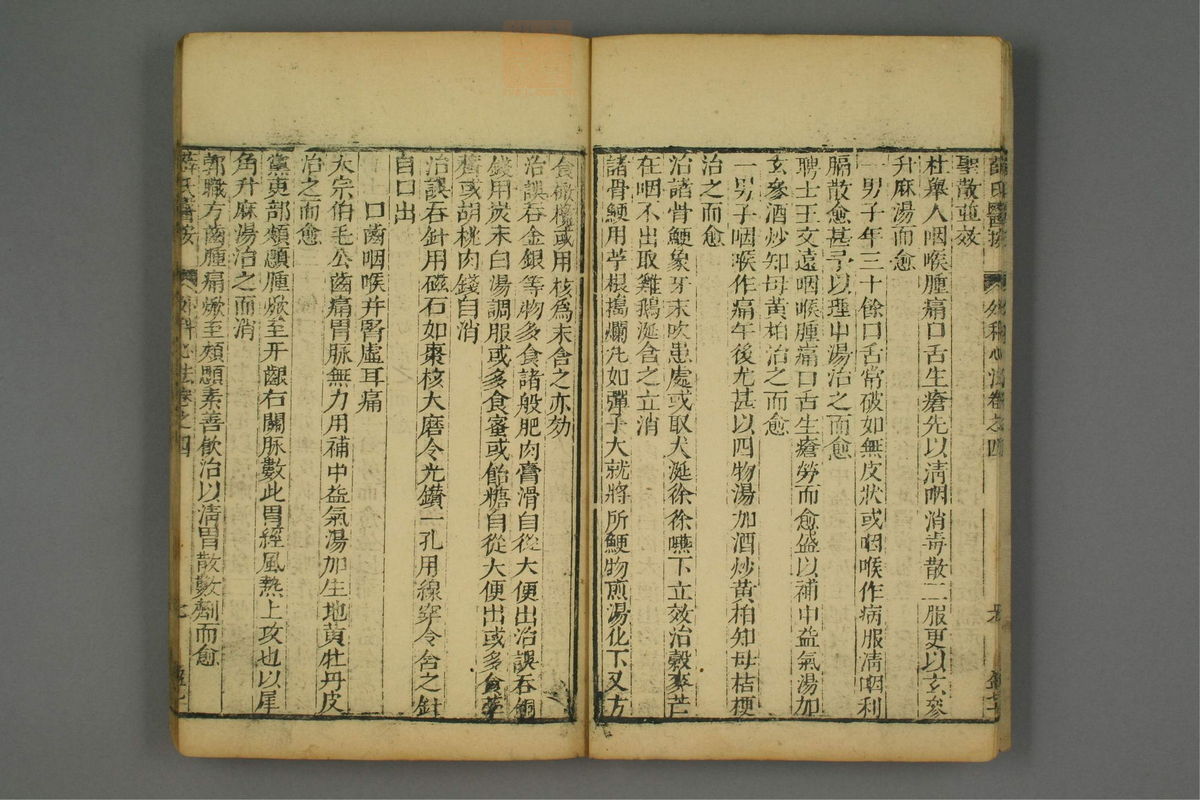 薛氏醫按 外科心法卷之四
聖散並效
杜舉人咽喉腫痛口舌生瘡先以清咽消毒散二服更以玄參
升麻湯而愈
一男子年三十餘口舌常破如無皮狀或咽喉作痛服清咽利
膈散愈甚予以理中湯治之而愈
聘士王文遠咽喉腫痛口舌生瘡勞而愈盛以補中益氣湯加
玄參酒炒知母黃柏治之而愈
一男子咽喉作痛午後尤甚以四物湯加酒炒黃柏知母桔梗
治之而愈
治諸骨鯁象牙末吹患處或取犬涎徐徐嚥下立效治穀麥芒
在咽不出取雞鵝涎含之立消
諸骨鯁用苧根搗爛丸如彈子大就將所鯁物煎湯化下又方
食橄欖或用核為末含之亦効
治誤吞金銀等物多食諸般肥肉膏滑自從大便出治誤吞銅
錢用炭末白湯調服或多食蜜或飴糖自從大便出或多食荸
薺或胡桃肉錢自消
治誤吞針用磁石如棗核大磨令光鑽一孔用線穿令含之針
自口出
口齒咽喉并腎虛耳痛
太宗伯毛公齒痛胃脉無力用補中益氣湯加生地黃牡丹皮
治之而愈
黨吏部頰顋腫焮至牙齦右關脉數此胃經風熱上攻也以犀
角升麻湯治之而消
郭職方齒腫痛焮至頰顋素善飲治以清胃散數劑而愈
薛氏醫按 外科心法卷之四 七